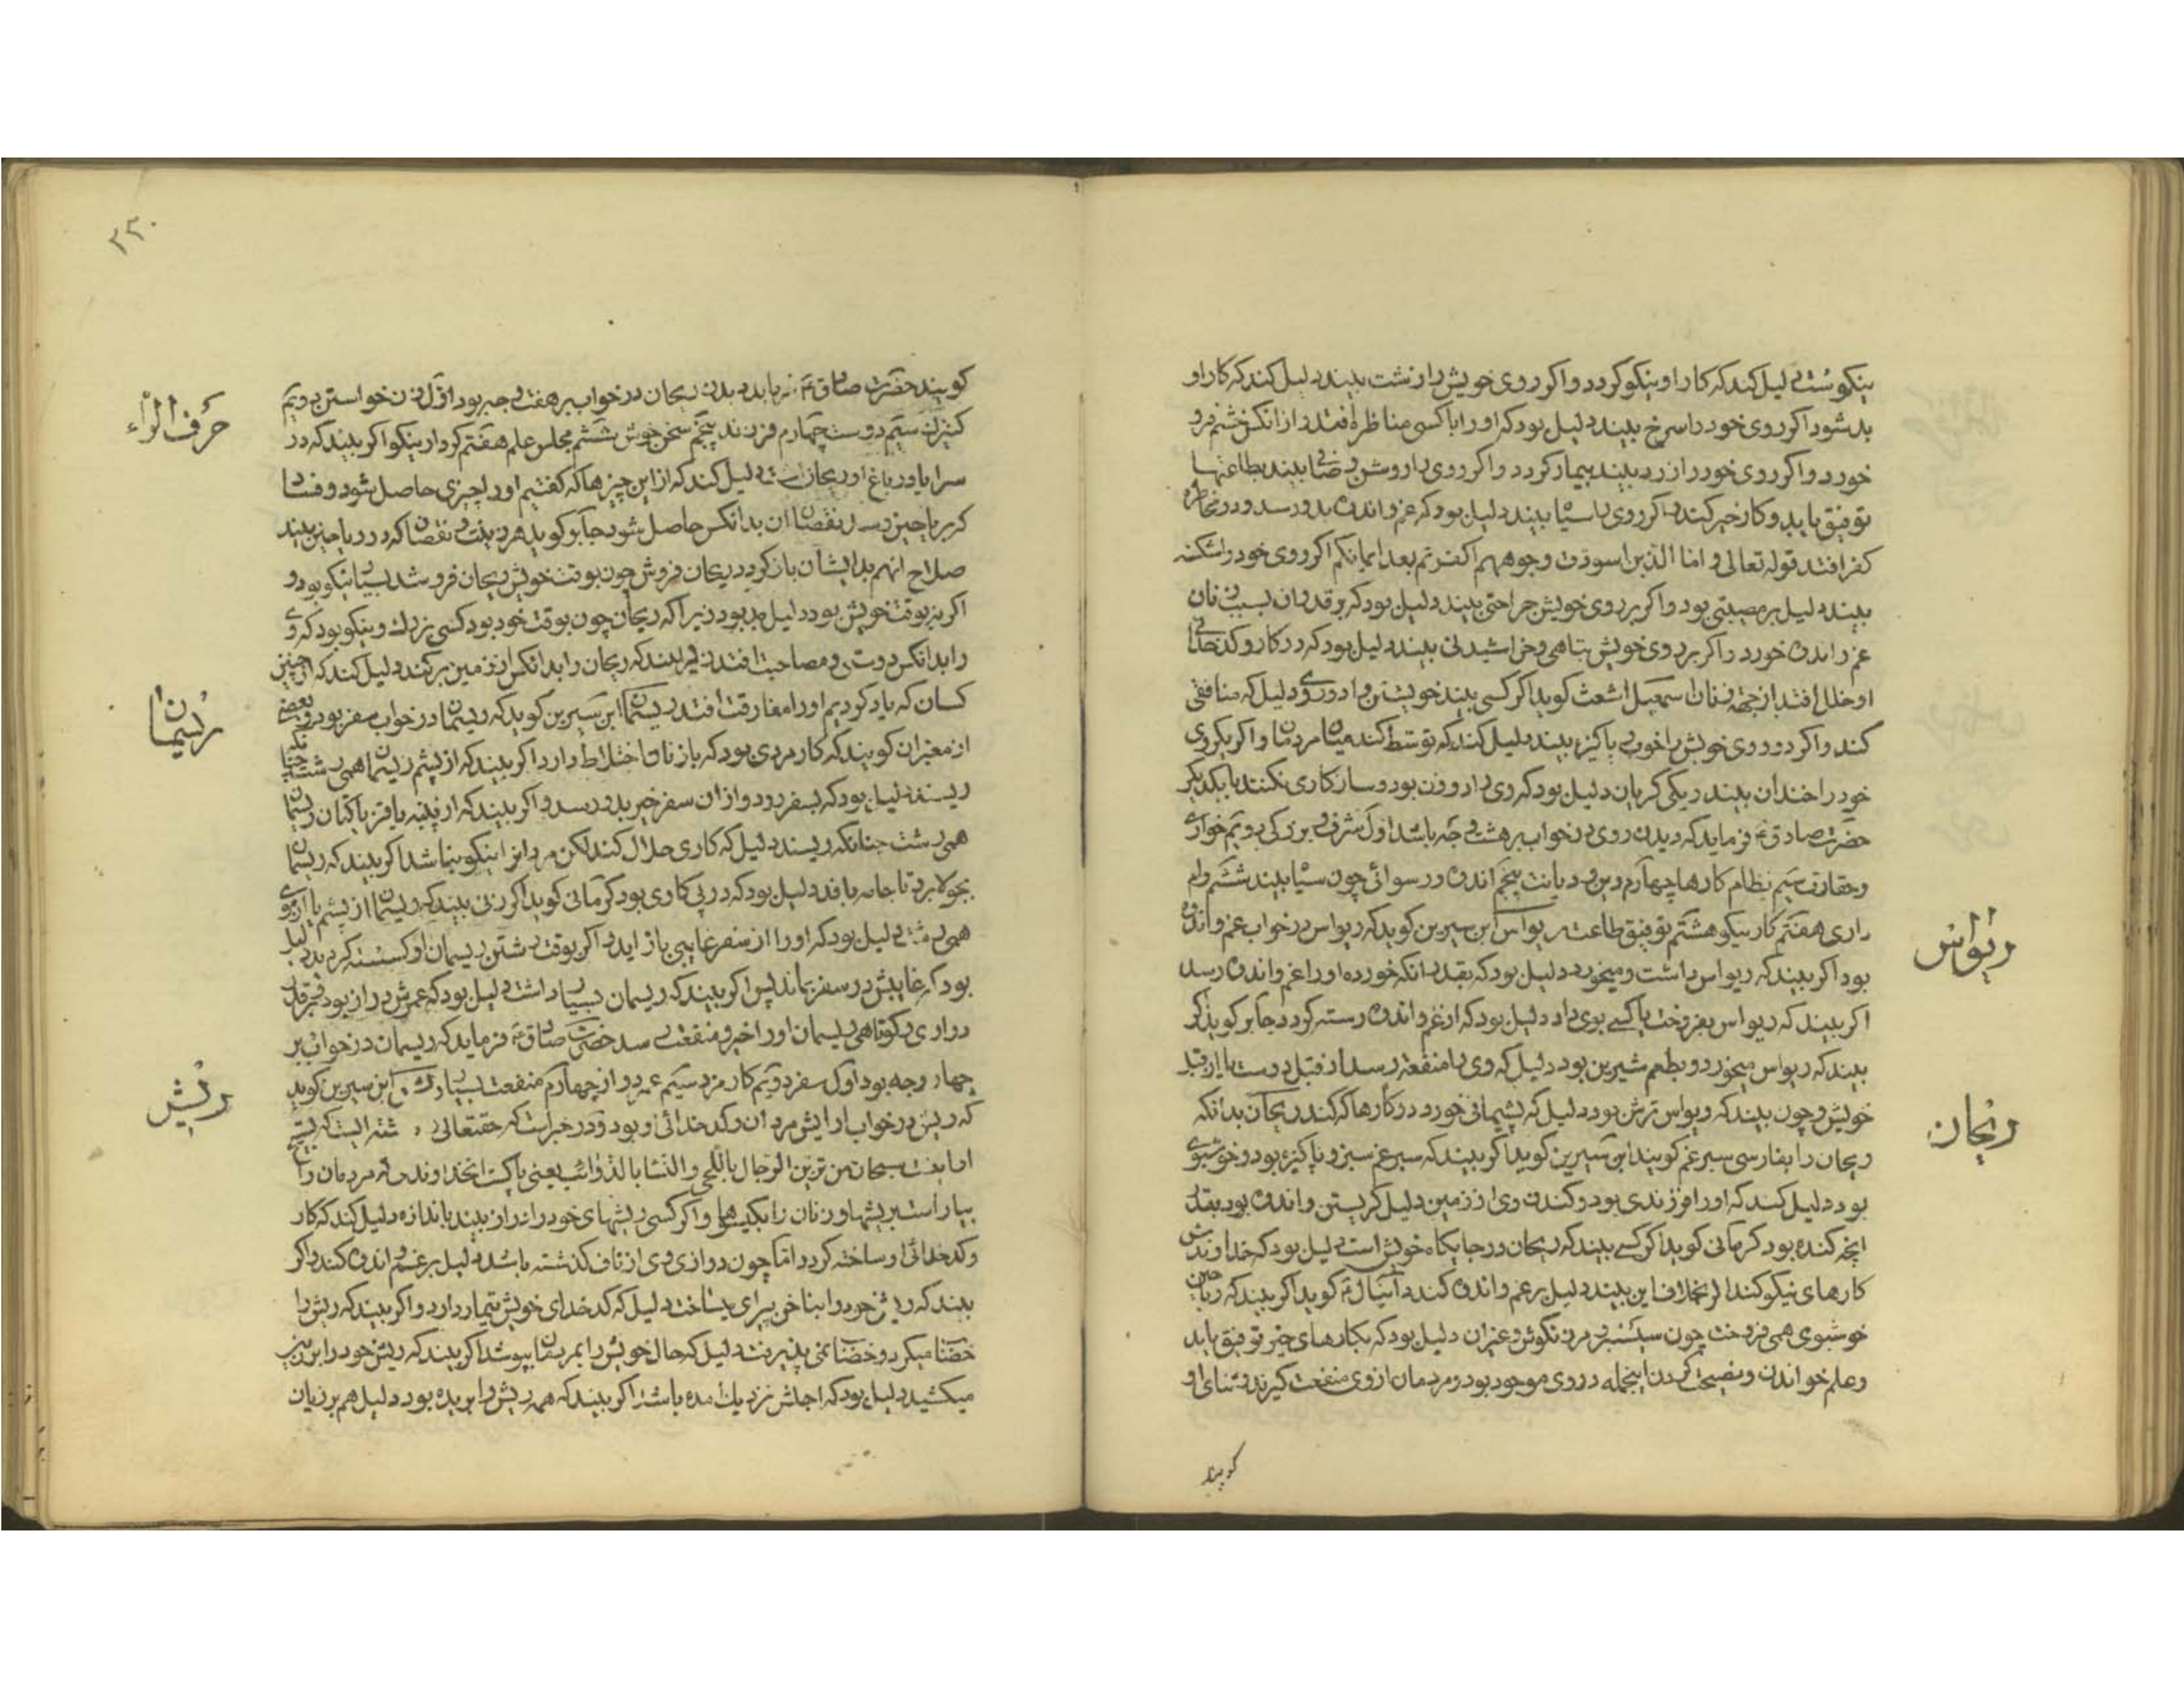 نیکوست دلیل کند که کار او نیکو کردد و اکر روی خویش را زشت بیند دلیل کند که کار او
بد شود اکر روی خود را سرخ بیند دلیل بود که او را با کسی مناظره افتد و از انکس خشم فرو
خورد و اکر روی خود را زرد بیند بیمار کردد و اکر روی را روشن و صافی بیند بطاعتها
توفیق یابد و کار خیر کند اکر روی را سیاه بیند دلیل بود که غم و اندوه بدو رسد و در مخاطره
کفر افتد قوله تعالی و اما الذین اسودت وجوههم اکفرتم بعد ایمانکم اکر روی خود را شکسته
بیند دلیل بر مصیبتی بود و اکر بر روی خویش جراحتی بیند دلیل بود که بر قدر ان بسبب زنان
غم و اندوه خورد و اکر بر روی خویش تباهی و خراشیدنی بیند دلیل بود که در کار و کدخدائی
او خلل افتد از جهة زنان اسمعیل اشعث کوید اکر کسی بیند خویشتن را دو روی دلیل که منافقی
کند و اکر دو روی خویش را خوب و پاکیزه بیند دلیل کند که توسط کند میان مردمان و اکر یکروی
خود را خندان بیند و یکی کریان دلیل بود که وی را دو زن بود و سازکاری نکنند با یکدیکر
حضرت صادق ع فرماید که دیدن روی در خواب بر هشت وجه باشد اول شرف و بزرکی دویم خواری
و حقارت سیم نظام کارها چهارم دین و دیانت پنجم اندوه و رسوائی چون سیاه بیند ششم وام
داری هفتم کار نیکو هشتم توفیق طاعت ریواس ابن سیرین کوید که ریواس در خواب غم و اندوه
بود اکر بیند که ریواس داشت و میخورد دلیل بود که بقدر انکه خورده او را غم و اندوه رسد
اکر بیند که ریواس بفروخت یا کسے بوی داد دلیل بود که از غم و اندوه رسته کردد جابر کوید اکر
بیند که ریواس میخورد و بطعم شیرین بود دلیل که وی را منفعة رسد از قبل دوست یا از قبل
خویش و چون بیند که ریواس ترش بود دلیل که پشیمانی خورد در کارها که کند ریحان بدانکه
ریحان را بفارسی سپرغم کویند ابن سیرین کوید اکر بیند که سپرغم سبز و پاکیزه بود و خوشبوی
بود دلیل کند که او را فرزندی بود و کندن وی از زمین دلیل کریستن و اندوه بود بقدر
انچه کنده بود کرمانی کوید اکر کسے بیند که ریحان در جایکاه خویش است دلیل بود که خداوندش
کارهای نیکو کند اکر بخلاف این بیند دلیل بر غم و اندوه کند دانیال ع کوید اکر بیند که ریحان
خوشبوی همی فروخت چون سیسنبر و مرزنکوش و غیر ان دلیل بود که بکارهای خیر توفیق یابد
و علم خواندن و نصیحت کردن اینجمله در وی موجود بود و مردمان از وی منفعت کیرند و ثنای او
ریواس
ریحان
کویند
۲۲۰
کویند حضرت صادق ع فرماید دیدن ریحان در خواب بر هفت وجه بود اول زن خواستن دویم
کنیزک سیم دوست چهارم فرزند پنجم سخن خوش ششم مجلس علم هفتم کردار نیکو اکر بیند که در
سرا یا در باغ او ریحان است دلیل کند که از این چیزها که کفتیم او را چیزی حاصل شود
صلاح انهم بدایشان باز کردد ریحان فروش چون بوقت خویش ریحان فروشد بسیار نیکو بود و
اکر نه بوقت خویش بود دلیل بد بود زیرا که ریحان چون بوقت خود بود کسی نزدیک وی نیکو بود که وی
را بدانکس دوستی و مصاحبت افتد
کسان که یاد کردیم او را مفارقت افتد ریسمان ابن سیرین کوید که ریسمان در خواب سفر بود و بعضے
از معبران کویند که کار مردی بود که با زنان اختلاط دارد اکر بیند که از پشم ریسمان همی رشت چنانکه
ریسند دلیل بود که بسفر رود و از ان سفر خیر بدو رسد و اکر بیند که از پنبه یا قز یا کتان ریسمان
همی رشت چنانکه ریسند دلیل که کاری حلال کند لکن مردانرا نیکو نباشد اکر بیند که ریسمان
بجولا برد تا جامه بافد دلیل بود که در پی کاری بود کرمانی کوید اکر زنی بیند که ریسمان از پشم یا از موی
همی رشت دلیل بود که او را از سفر غایبی باز اید و اکر بوقت رشتن ریسمان او کسسته کردید دلیل
بود که غایبش در سفر بماند پس اکر بیند که ریسمان بسیار داشت دلیل بود که عمرش دراز بود
درازی و کوتاهی ریسمان او را خیر و منفعت رسد حضرت صادق ع فرماید که ریسمان در خواب بر
چهار وجه بود اول سفر دویم کار مزد سیم عمر دراز چهارم منفعت بسیار ریش ابن سیرین کوید
که ریش در خواب ارایش مردان و کدخدائی او بود و در خبر است که حقتعالی
سبحان من تزین الرجال باللحی و النسا بالذوائب یعنی پاکست انخداوند که مردمان را
بیاراست بریشها و زنان را بکیسوها و اکر کسی ریشهای خود را دراز بیند باندازه دلیل کند که کار
و کدخدائی او ساخته کردد اما چون درازی وی از ناف کذشته باشد دلیل بر غم و اندوه کند و اکر
بیند که ریش خود را بناخن پیرای دلیل که کدخدای خویش تیمار دارد و اکر بیند که ریش را
خضاب میکرد و خضاب نمی پذیرفت دلیل که حال خویش را بمردمان بپوشد اکر بیند که ریش خود را بر زمین
میکشید دلیل بود که اجلش نزدیک امده باشد اکر بیند که همه ریش را بریده بود دلیل هم بر زیان
حرف الراء
ریسمان
ریش